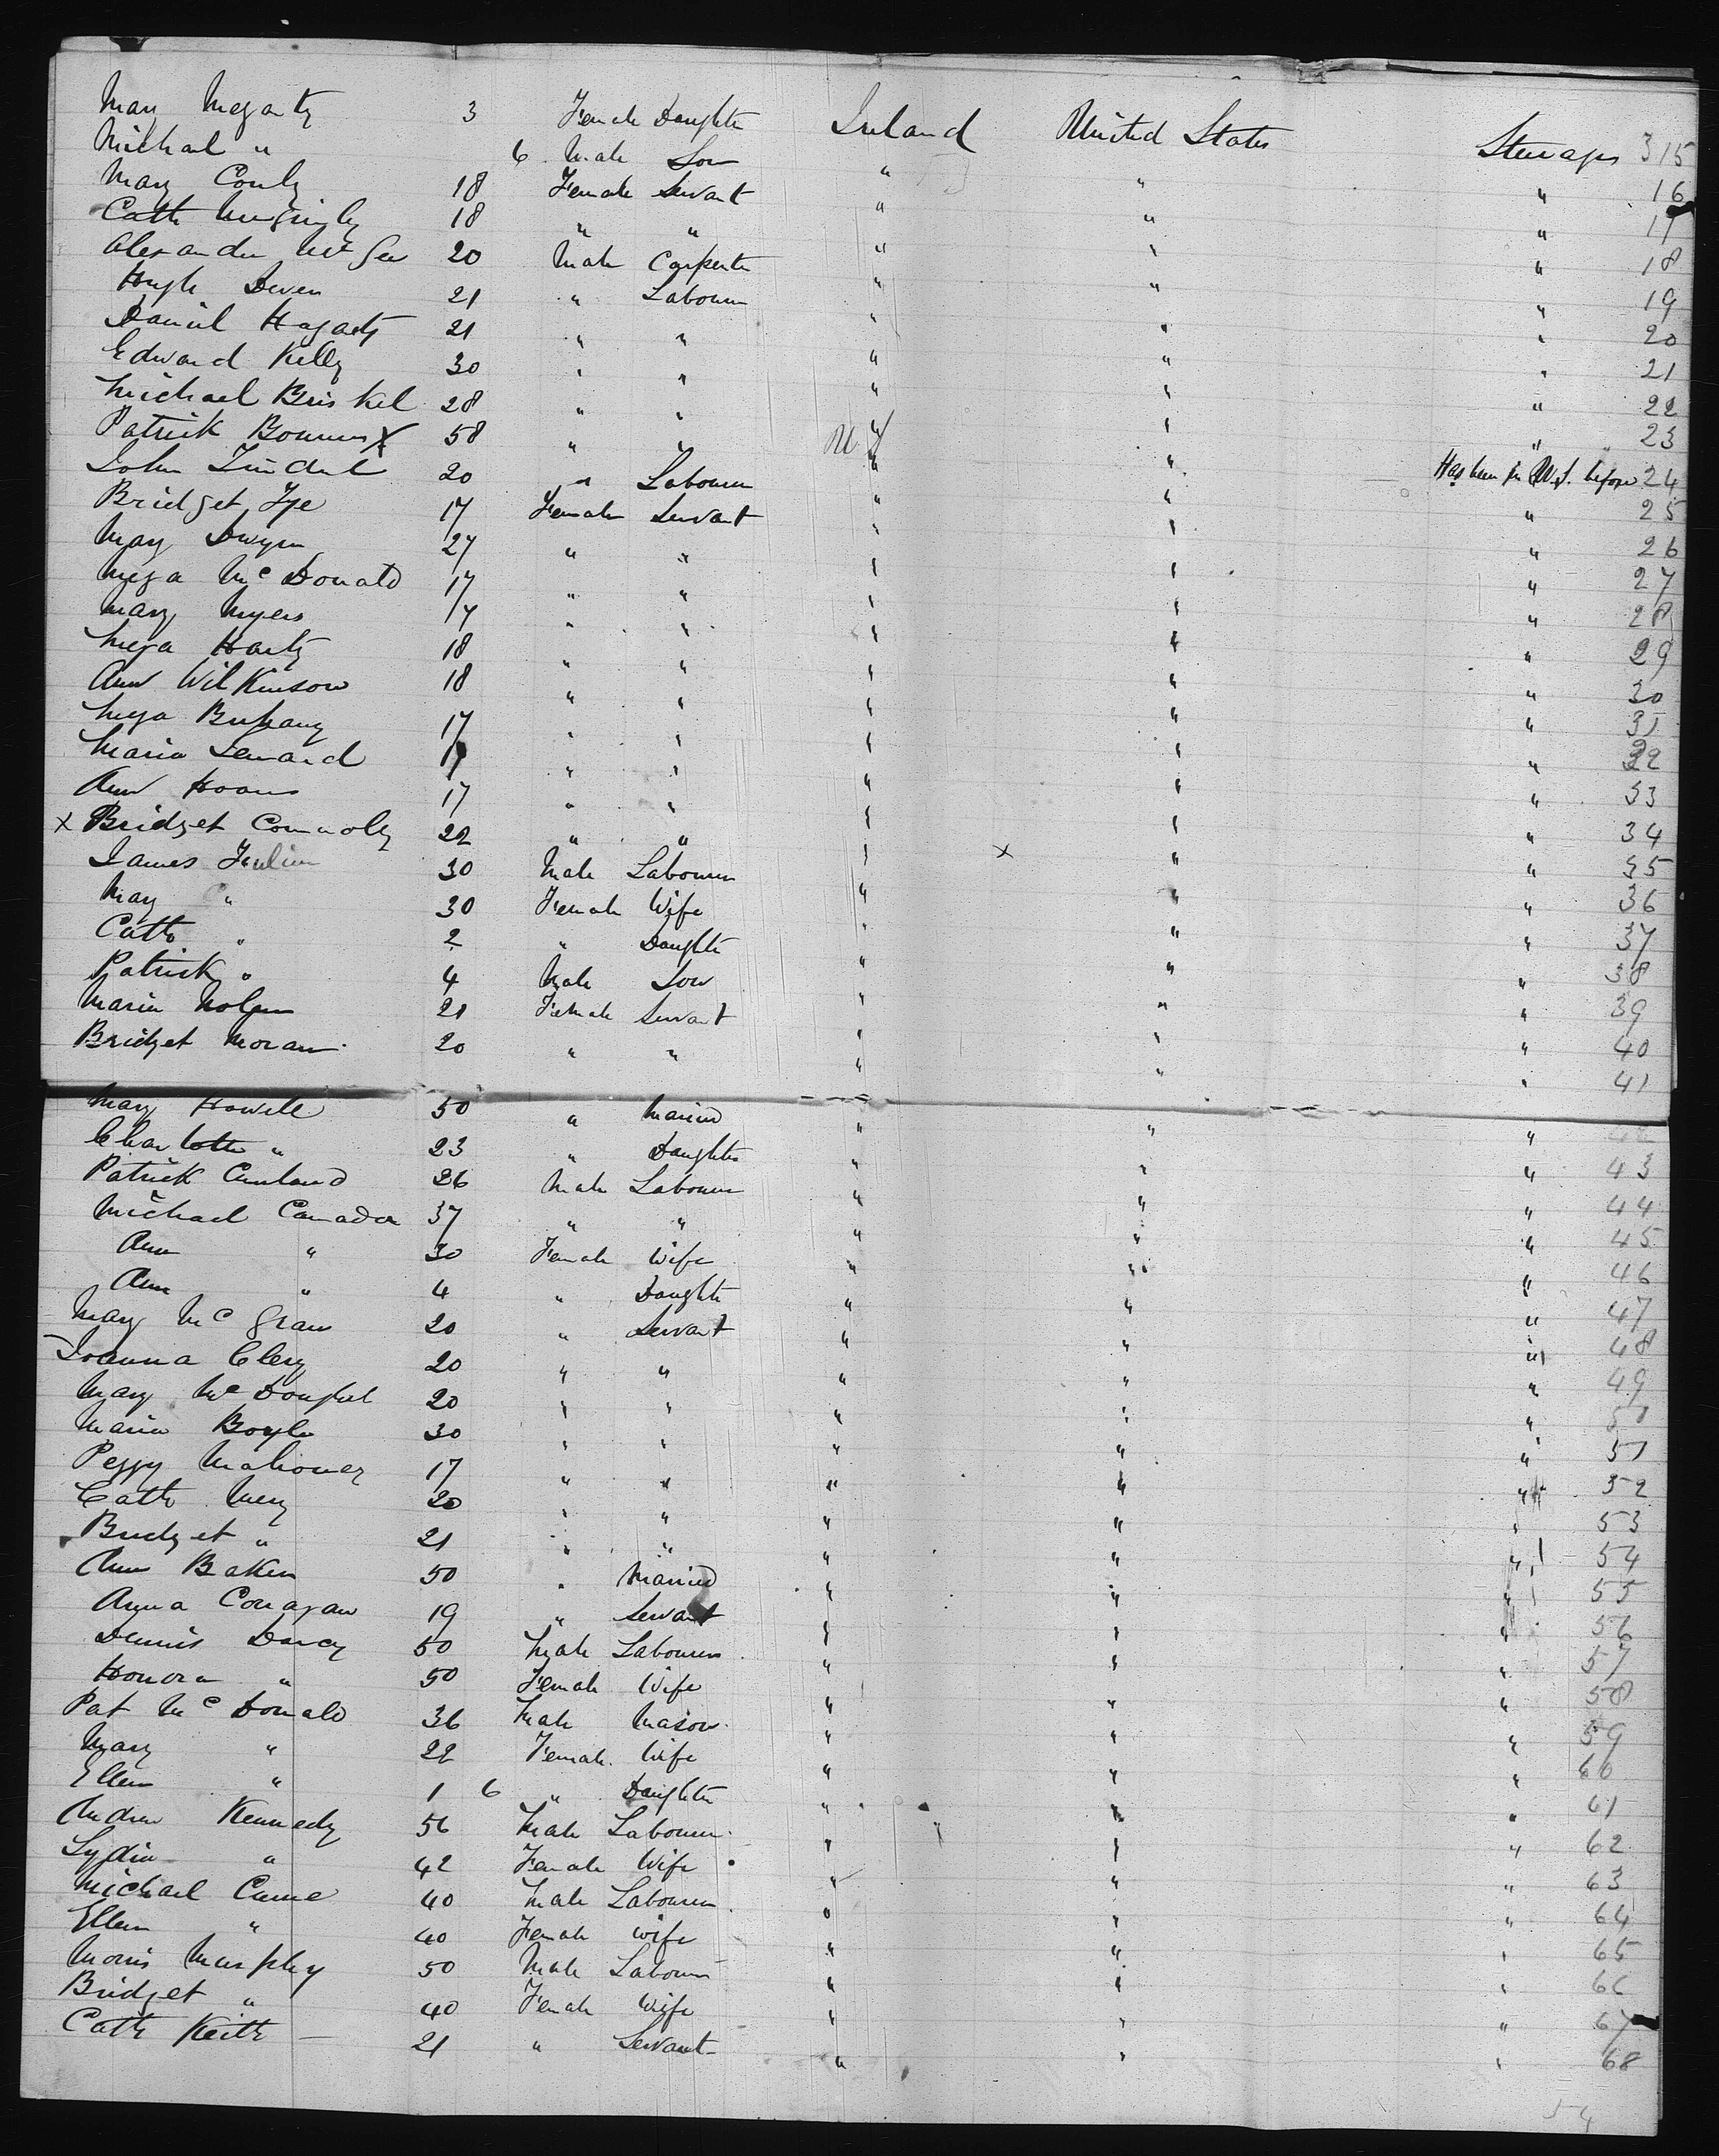 Mary Megarty 3 Female Daughter Ireland United States Steerage 315
Michael " 6 Male Son " " " 16
Mary Conly 18 Female Servant " " " 17
Cath 18 " " " " " 18
Alexander McGee 20 Male Carpenter " " " 19
Hugh Deven 21 " Labourer " " " 20
Daniel Hagarty 21 " " " " " 21
Edward Kelly 30 " " " " " 22
Michael Briskel 28 " " " " " 23
Patrick X 58 " " U S " Has been in U.S. before 24
John 20 " Labourer " " " 25
Bridget Fye 17 Female Servant " " " 26
Mary Dwyer 27 " " " " " 27
Mega McDonald 17 " " " " " 28
Mary Myers 17 " " " " " 29
Mega Harty 18 " " " " " 30
Ann Wilkinson 18 " " " " " 31
Mega 17 " " " " " 32
Maria Lenard 17 " " " " " 33
Ann 17 " " " " " 34
X Bridget Connolly 22 " " " X " " 35
James 30 Male Labourer " " " 36
Mary " 30 Female Wife " " " 37
Cath " 2 " Daughter " " " 38
Patrick " 4 Male Son " " " 39
Maria Nolan 21 Female Servant " " " 40
Bridget Moran 20 " " " " " 41
Mary Howell 50 " Married " " " 42
Charlotte " 23 " Daughter " " " 43
Patrick 26 Male Labourer " " " 44
Michael Canada 37 " " " " " 45
Ann " 30 Female Wife " " " 46
Ann " 4 " Daughter " " " 47
Mary McGraw 20 " Servant " " " 48
Joanna Clery 20 " " " " " 49
Mary McDougal 20 " " " " " 50
Maria Boyle 30 " " " " " 51
Peggy Mahoney 17 " " " " " 52
Cath 20 " " " " " 53
Bridget " 21 " " " " " 54
Ann Baken 50 " Married " " " 55
Anna Conagan 19 " Servant " " " 56
Dennis Darcy 50 Male Labourer " " " 57
Honora " 50 Female Wife " " " 58
Pat McDonald 36 Male Mason " " " 59
Mary " 22 Female Wife " " " 60
Ellen " 1 6 " Daughter " " " 61
Andrew Kennedy 56 Male Labourer " " " 62
Lydia " 42 Female Wife " " " 63
Michael 40 Male Labourer " " " 64
Ellen " 40 Female Wife " " " 65
Morris Murphy 50 Male Labourer " " " 66
Bridget " 40 Female Wife " " " 67
Cath Keith 21 " Servant " " " 68
54